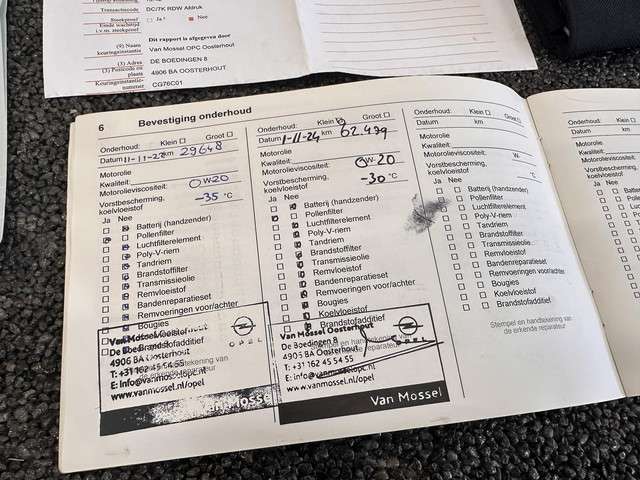 Transactiecode DC/7K RDW Afdruk
Steekproef Ja ! Nee
Einde wachttijd
i.v.m. steekproef
Dit rapport is afgegeven door
(9) Naam Van Mossel OPC Oosterhout
keuringsinstantie
(3) Adres DE BOEDINGEN 8
(3) Postcode en 4906 BA OOSTERHOUT
plaats
Keuringsinstantie- CG76C01
nummer
6 Bevestiging onderhoud
Onderhoud: Klein Groot
Datum 11-11-22 km 29648
Motorolie
Kwaliteit:
Motorolieviscositeit: 0W-20
Vorstbescherming,
koelvloeistof -35 °C
Ja Nee
Batterij (handzender)
Pollenfilter
Luchtfilterelement
Poly-V-riem
Tandriem
Brandstoffilter
Transmissieolie
Remvloeistof
Bandenreparatieset
Remvoeringen voor/achter
Bougies
Van Mossel Oosterhout
De Boedingen 8
4906 BA Oosterhout
T: +31 162 45 54 55
E: info@vanmosselopc.nl
www.vanmossel.nl/opel
OPEL
Van Mossel
Onderhoud: Klein Groot
Datum 1-11-24 km 62499
Motorolie
Kwaliteit:
Motorolieviscositeit: 0W-20
Vorstbescherming,
koelvloeistof -30 °C
Ja Nee
Batterij (handzender)
Pollenfilter
Luchtfilterelement
Poly-V-riem
Tandriem
Brandstoffilter
Transmissieolie
Remvloeistof
Bandenreparatieset
Remvoeringen voor/achter
Bougies
Koelvloeistof
Brandstofadditief
Van Mossel Oosterhout
De Boedingen 8
4905 BA Oosterhout
T: +31 162 45 54 55
E: info@vanmosselopc.nl
www.vanmossel.nl/opel
OPEL
Van Mossel
Onderhoud: Klein Groot
Datum km
Motorolie
Kwaliteit:
Motorolieviscositeit: W-
Vorstbescherming,
koelvloeistof °C
Ja Nee
Batterij (handzender)
Pollenfilter
Luchtfilterelement
Poly-V-riem
Tandriem
Brandstoffilter
Transmissieolie
Remvloeistof
Bandenreparatieset
Remvoeringen voor/achter
Bougies
Koelvloeistof
Brandstofadditief
Stempel en handtekening van
de erkende reparateur
Onderhoud:
Datum
Motorolie
Kwaliteit:
Motorolieviscositeit:
Vorstbescherming,
koelvloeistof
Ja Nee